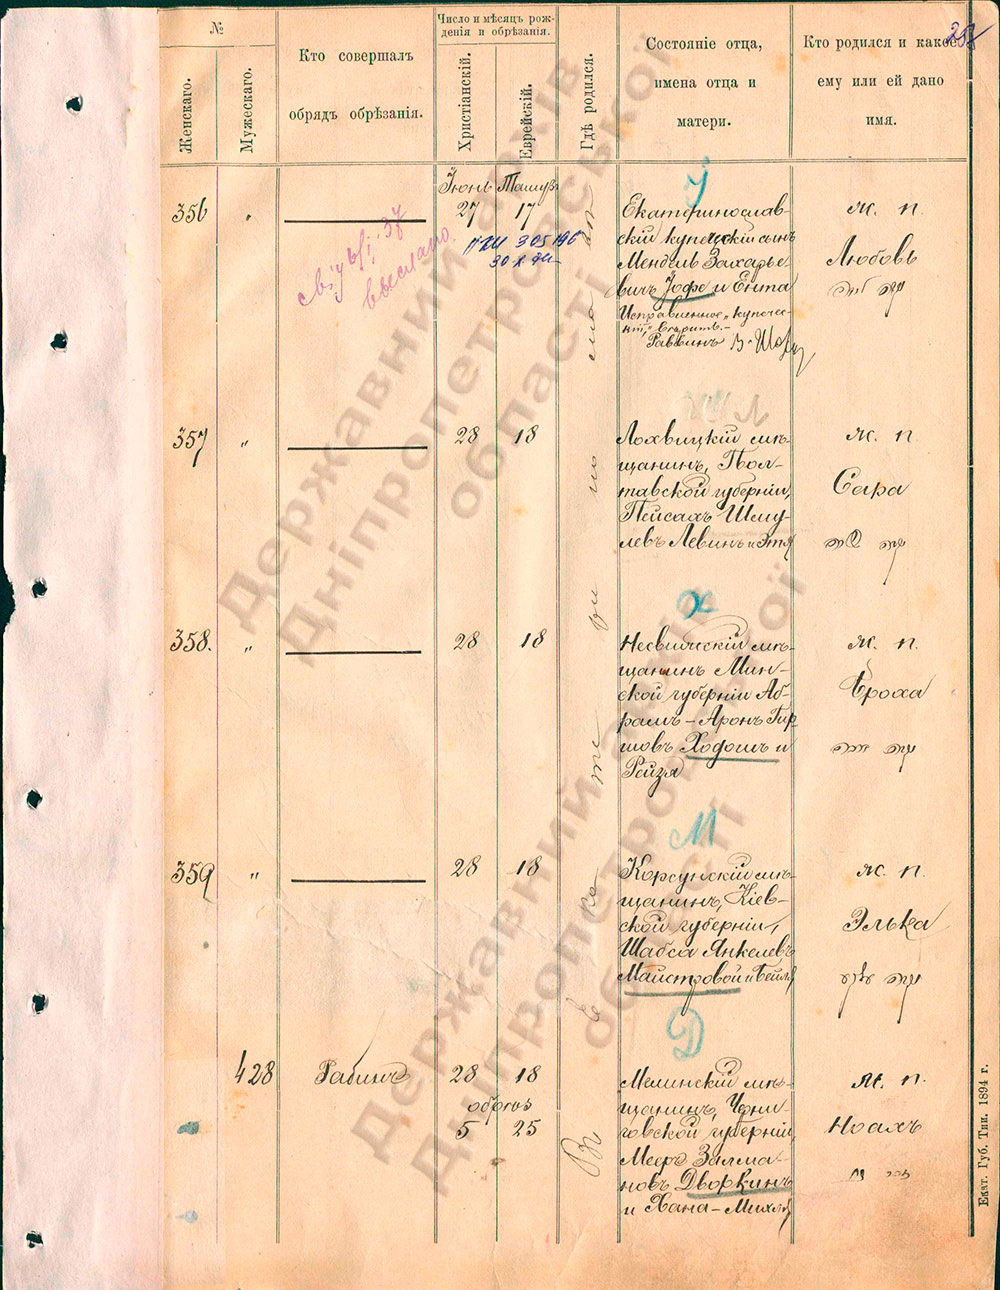 №
Женскаго.
Мужескаго.
Кто совершалъ
обрядъ обрѣзанія.
Число и мѣсяцъ рож-
денія и обрѣзанія.
Христіанскій.
Еврейскій.
Гдѣ родился.
Состояніе отца,
имена отца и
матери.
Кто родился и какое
ему или ей дано
имя.
Іюнь Тамузъ
356 " 27 17
Екатеринослав-
скій купеческій сынъ
Мендель Захарье-
вичъ Іофе и Ента
Исправленное „купечес-
кій" вѣрить.-
Раввинъ
ж. п.
Любовь
выслано.
У
357 " 28 18
Лохвицкій мѣ-
щанинъ, Пол-
тавской губерніи,
Пейсахъ Шму-
левъ Левинъ и Этя
ж. п.
Сара
Х
358. " 28 18
Несвижскій мѣ-
щанинъ Мин-
ской губерніи Аб-
рамъ-Аронъ Гир-
шовъ Ходошъ и
Рейзя
ж. п.
Броха
М
359 " 28 18
Корсунскій мѣ-
щанинъ, Кіев-
ской губерніи,
Шабса Янкелевъ
Майстровой и Бейля
ж. п.
Элька
Д
428 Рабинъ 28 18
обрѣз
5 25
Мглинскій мѣ-
щанинъ, Черни-
говской губерніи,
Мееръ Залма-
новъ Дворкинъ
и Хана-Михля
м. п.
Ноахъ
Въ Екатеринославѣ
Екат. Губ. Тип. 1894 г.
Державний архів
Дніпропетровської
області
Державний архів
Дніпропетровської
області